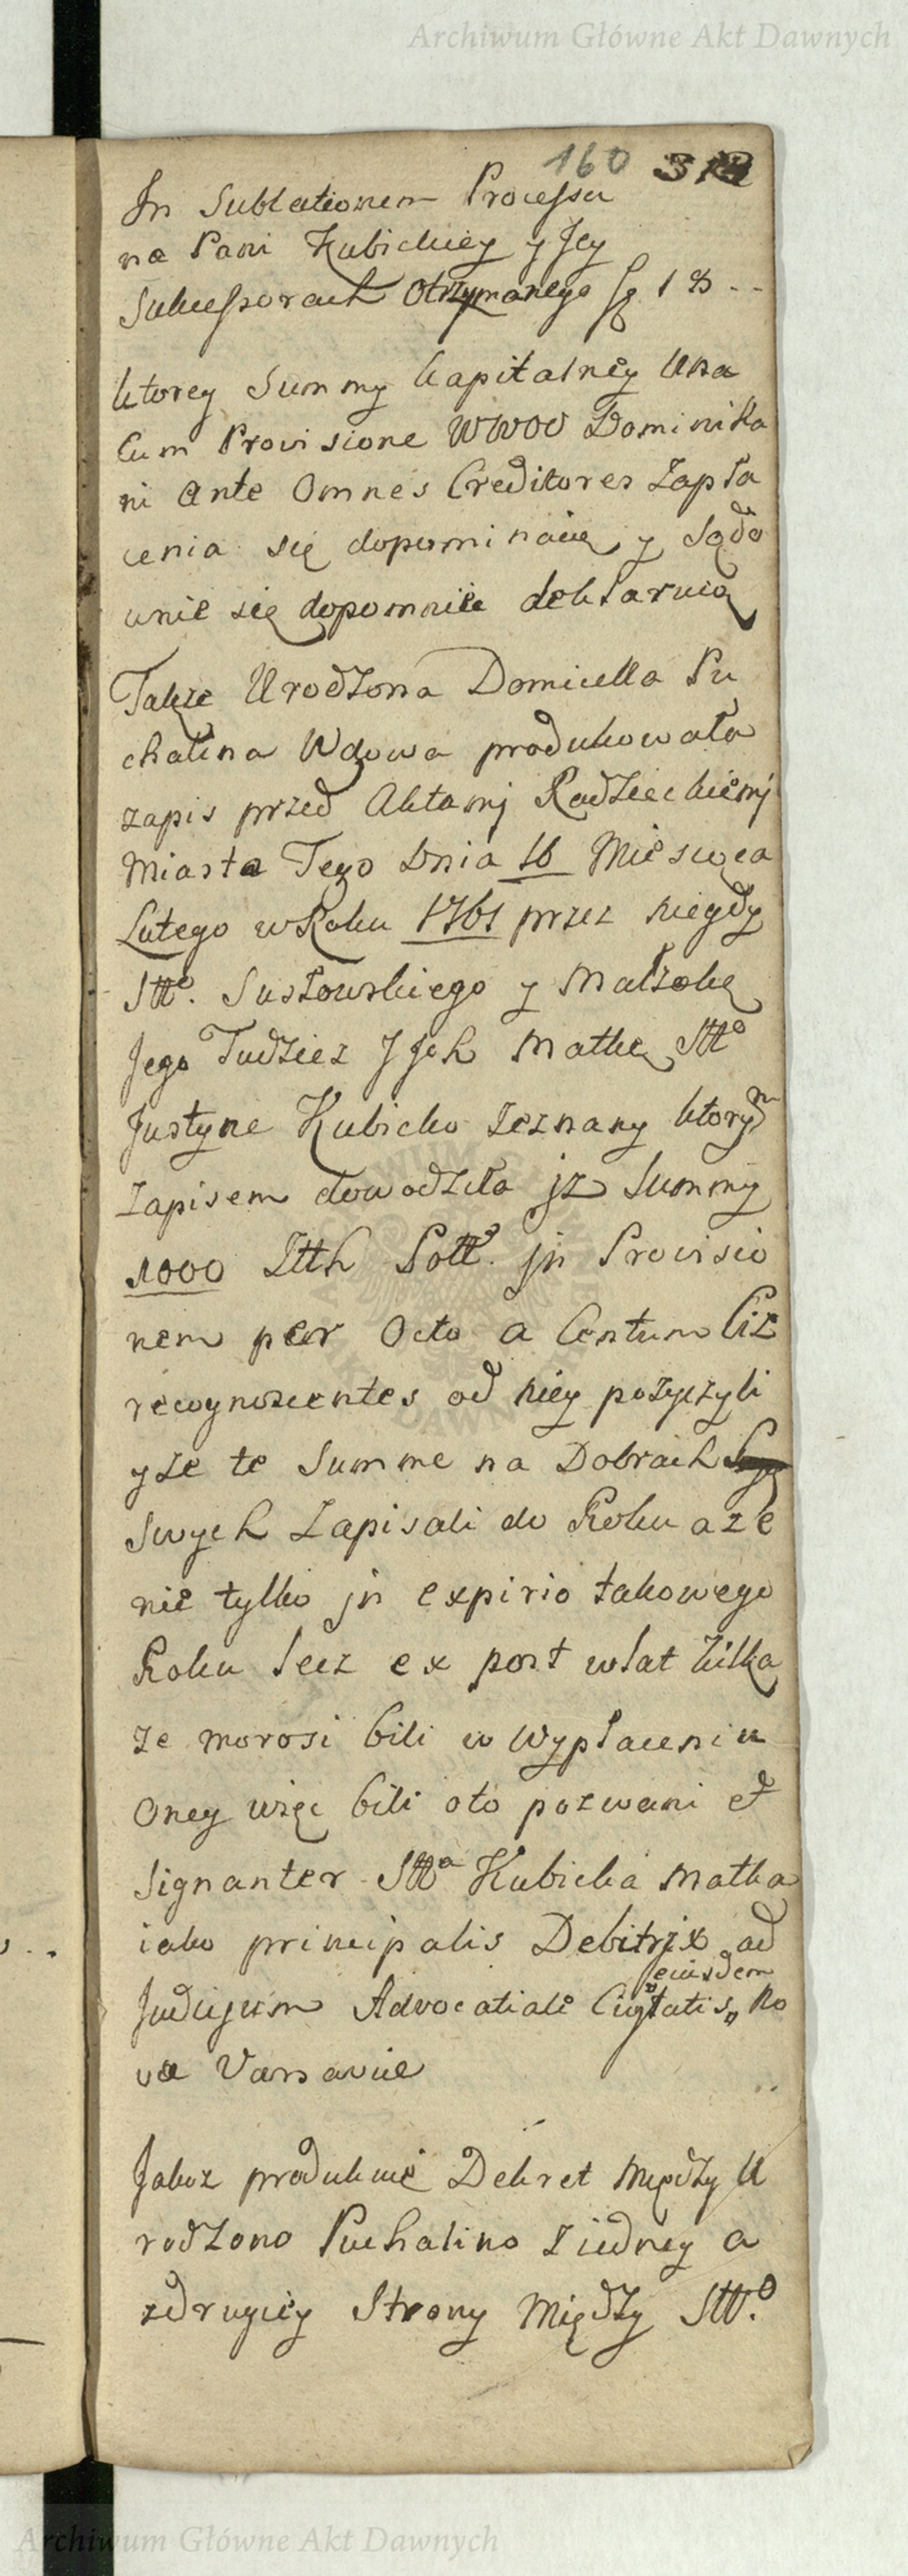 Archiwum Główne Akt Dawnych
160
In Sublationem Processu
na Pani Kubickiey y Jey
Sukcessorach Otrzymanego
ktorey Summy kapitalney Una
Cum Provisione WWOO Dominika
ni Ante Omnes Creditores Zapła
cenia się dopominaią y Sądo
wnie się dopomnieć deklaruią
Także Urodzona Domicella Pu
chalina Wdowa produkowała
zapis przed Aktamj Radzieckiemj
Miasta Tego Dnia 16 Miesiąca
Lutego w Roku 1761 przez niegdy
Stto. Susłowskiego y Małżokę
Jego Tudziesz J Jch Matkę Stto
Justyne Kubicko zeznany ktorym
Zapisem dowodziła jz Summy
1000 Ztth Pott. jn Provisio
nem per Octo a Centum Ciz
recognoscentes od niey pożyczyli
yze te Summe na Dobrach
Swych Zapisali do Roku a ze
nie tylko jn expirio takowego
Roku lecz ex post w lat kilka
ze morosi bili w Wypłaceniu
Oney więc bili oto pozwani et
Signanter Stta Kubicka Matka
iako principalis Debitrjx ad
Judicjum Advocatiale Civjtatis eiusdem No
va Varsavie
Jakoz produkuie Dekret Między U
rodzono Puchalino z iedney a
z drugiey Strony Między Stt.o
Archiwum Główne Akt Dawnych